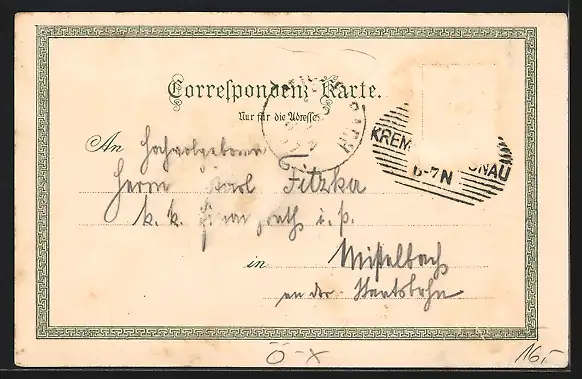 Correspondenz-Karte.
Nur für die Adresse.
An Hochwolgeboren
Herrn Karl Fitzka
k. k. Finanzrath i. P.
in Mistelbach
an der Staatsbahn
KREMS DONAU
6-7N
Ö-X
16,-